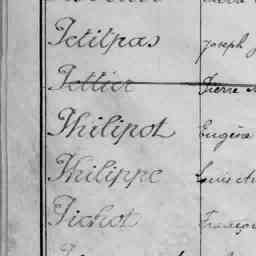 Petitpas Joseph
Pettier Pierre
Philipot Eugène
Philippe Louis
Pichot François